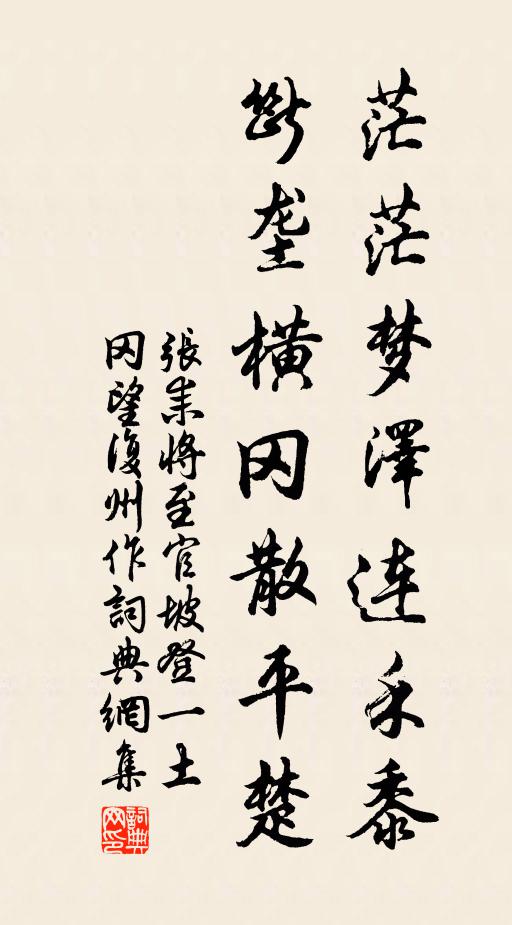 茫茫梦澤连禾黍
断垄横冈散平楚
張耒将至官坡登一土
冈望復州作詞典網集
詞典网印